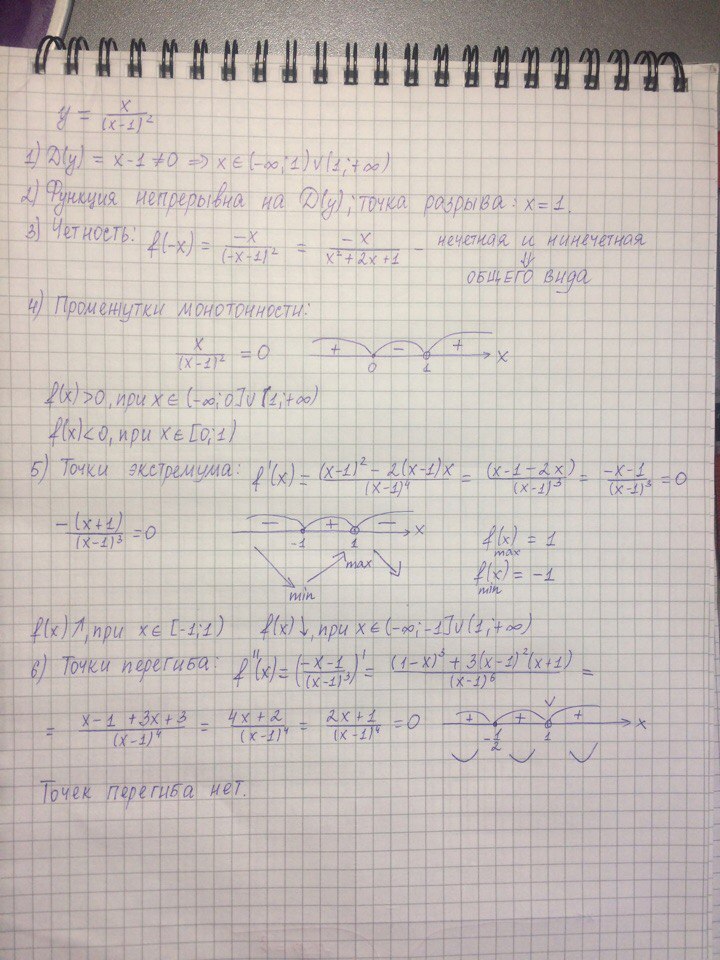 y = x/(x-1)²
1) D(y) = x-1 ≠ 0 ⇒ x ∈ (-∞; 1) ∪ (1; +∞)
2) Функция непрерывна на D(y); точка разрыва: x = 1.
3) Четность: f(-x) = -x/(-x-1)² = -x/(x²+2x+1) - нечетная и нинечетная
⇓
ОБЩЕГО вида
4) Промежутки монотонности:
x/(x-1)² = 0 + 0 - 1 + x
f(x) > 0, при x ∈ (-∞; 0] ∪ (1; +∞)
f(x) < 0, при x ∈ [0; 1)
5) Точки экстремума: f'(x) = ((x-1)² - 2(x-1)x)/(x-1)⁴ = (x-1-2x)/(x-1)³ = (-x-1)/(x-1)³ = 0
-(x+1)/(x-1)³ = 0 - -1 + 1 - x
min max
f(x) max = 1
f(x) min = -1
f(x)↑, при x ∈ [-1; 1) f(x)↓, при x ∈ (-∞; -1] ∪ (1; +∞)
6) Точки перегиба: f''(x) = ((-x-1)/(x-1)³)' = ((1-x)³ + 3(x-1)²(x+1))/(x-1)⁶ =
= (x-1+3x+3)/(x-1)⁴ = (4x+2)/(x-1)⁴ = (2x+1)/(x-1)⁴ = 0 + -1/2 + 1 + x
Точек перегиба нет.